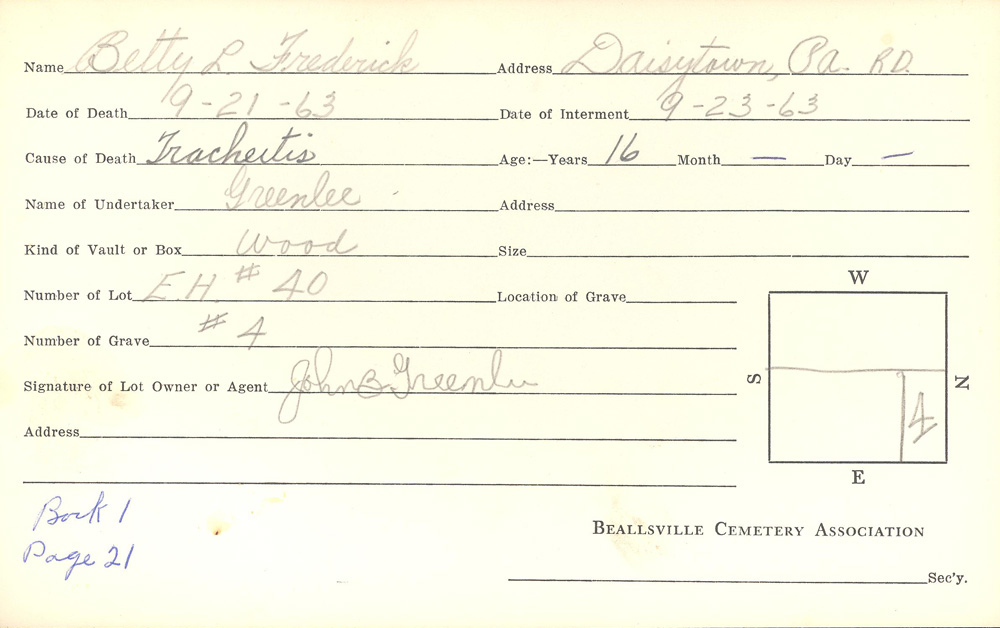 Name Betty L. Frederick Address Daisytown, Pa. RD.
Date of Death 9-21-63 Date of Interment 9-23-63
Cause of Death Tracheitis Age:—Years 16 Month — Day —
Name of Undertaker Greenlee Address
Kind of Vault or Box Wood Size
Number of Lot E.H. # 40 Location of Grave
Number of Grave # 4
Signature of Lot Owner or Agent John B. Greenlee
Address
W
S
N
4
E
Book 1
Page 21
BEALLSVILLE CEMETERY ASSOCIATION
Sec'y.